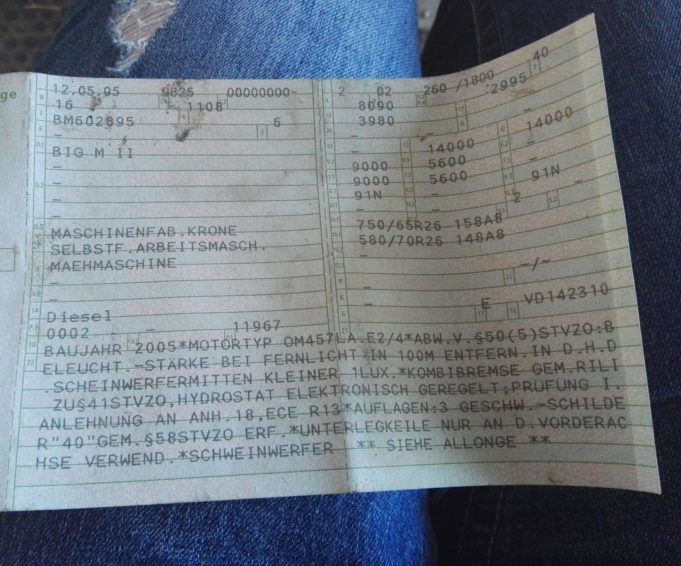 ge
12.05.05 9825 00000000- 2 02 260 /1800 40
16 1108 8090 2995
BM602895 6 3980 –
– – 14000
BIG M II – 14000
– 9000 5600 –
– 9000 5600 –
– 91N – 91N
– – 2
MASCHINENFAB.KRONE 750/65R26 158A8
SELBSTF.ARBEITSMASCH. 580/70R26 148A8
MAEHMASCHINE –
– – –/–
– –
Diesel – E VD142310
0002 – 11967
BAUJAHR 2005*MOTORTYP OM457LA.E2/4*ABW.V.§50(5)STVZO:B
ELEUCHT.-STÄRKE BEI FERNLICHT IN 100M ENTFERN.IN D.H.D
.SCHEINWERFERMITTEN KLEINER 1LUX.*KOMBIBREMSE GEM.RILI
.ZU§41STVZO,HYDROSTAT ELEKTRONISCH GEREGELT;PRÜFUNG I.
ANLEHNUNG AN ANH.18,ECE R13*AUFLAGEN:3 GESCHW.-SCHILDE
R"40"GEM.§58STVZO ERF.*UNTERLEGKEILE NUR AN D.VORDERAC
HSE VERWEND.*SCHWEINWERFER ** SIEHE ALLONGE **